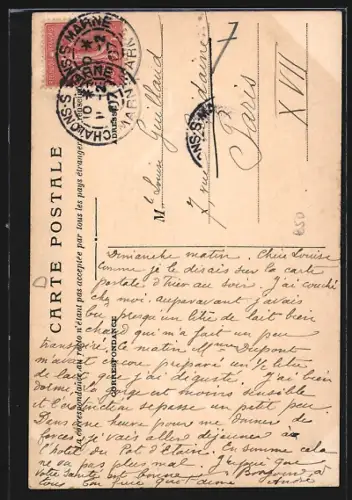 CARTE POSTALE
La correspondance au recto n'étant pas acceptée par tous les pays étrangers
CORRESPONDANCE
ADRESSE
CHALONS-S-MARNE
MARNE
M
Louise Guilland
7 rue
Paris
XVII
7
Dimanche matin. Chère Louise
Comme je le disais sur la carte
postale d'hier au soir. J'ai couché
chez moi. auparavant j'avais
bu presque un litre de lait bien
chaud qui m'a fait un peu
transpiré. Ce matin Mme Dupont
m'avait encore préparé un ½ litre
de lait que j'ai dégusté. J'ai bien
dormi. La gorge est moins sensible
et l'extinction se passe un petit peu.
Dans une heure pour me donner des
forces je vais aller déjeuner à
l'hôtel du Pot d'Etain. En somme cela
ne va pas plus mal. J'espère que
votre santé est bonne. Bonjour à
tous
André